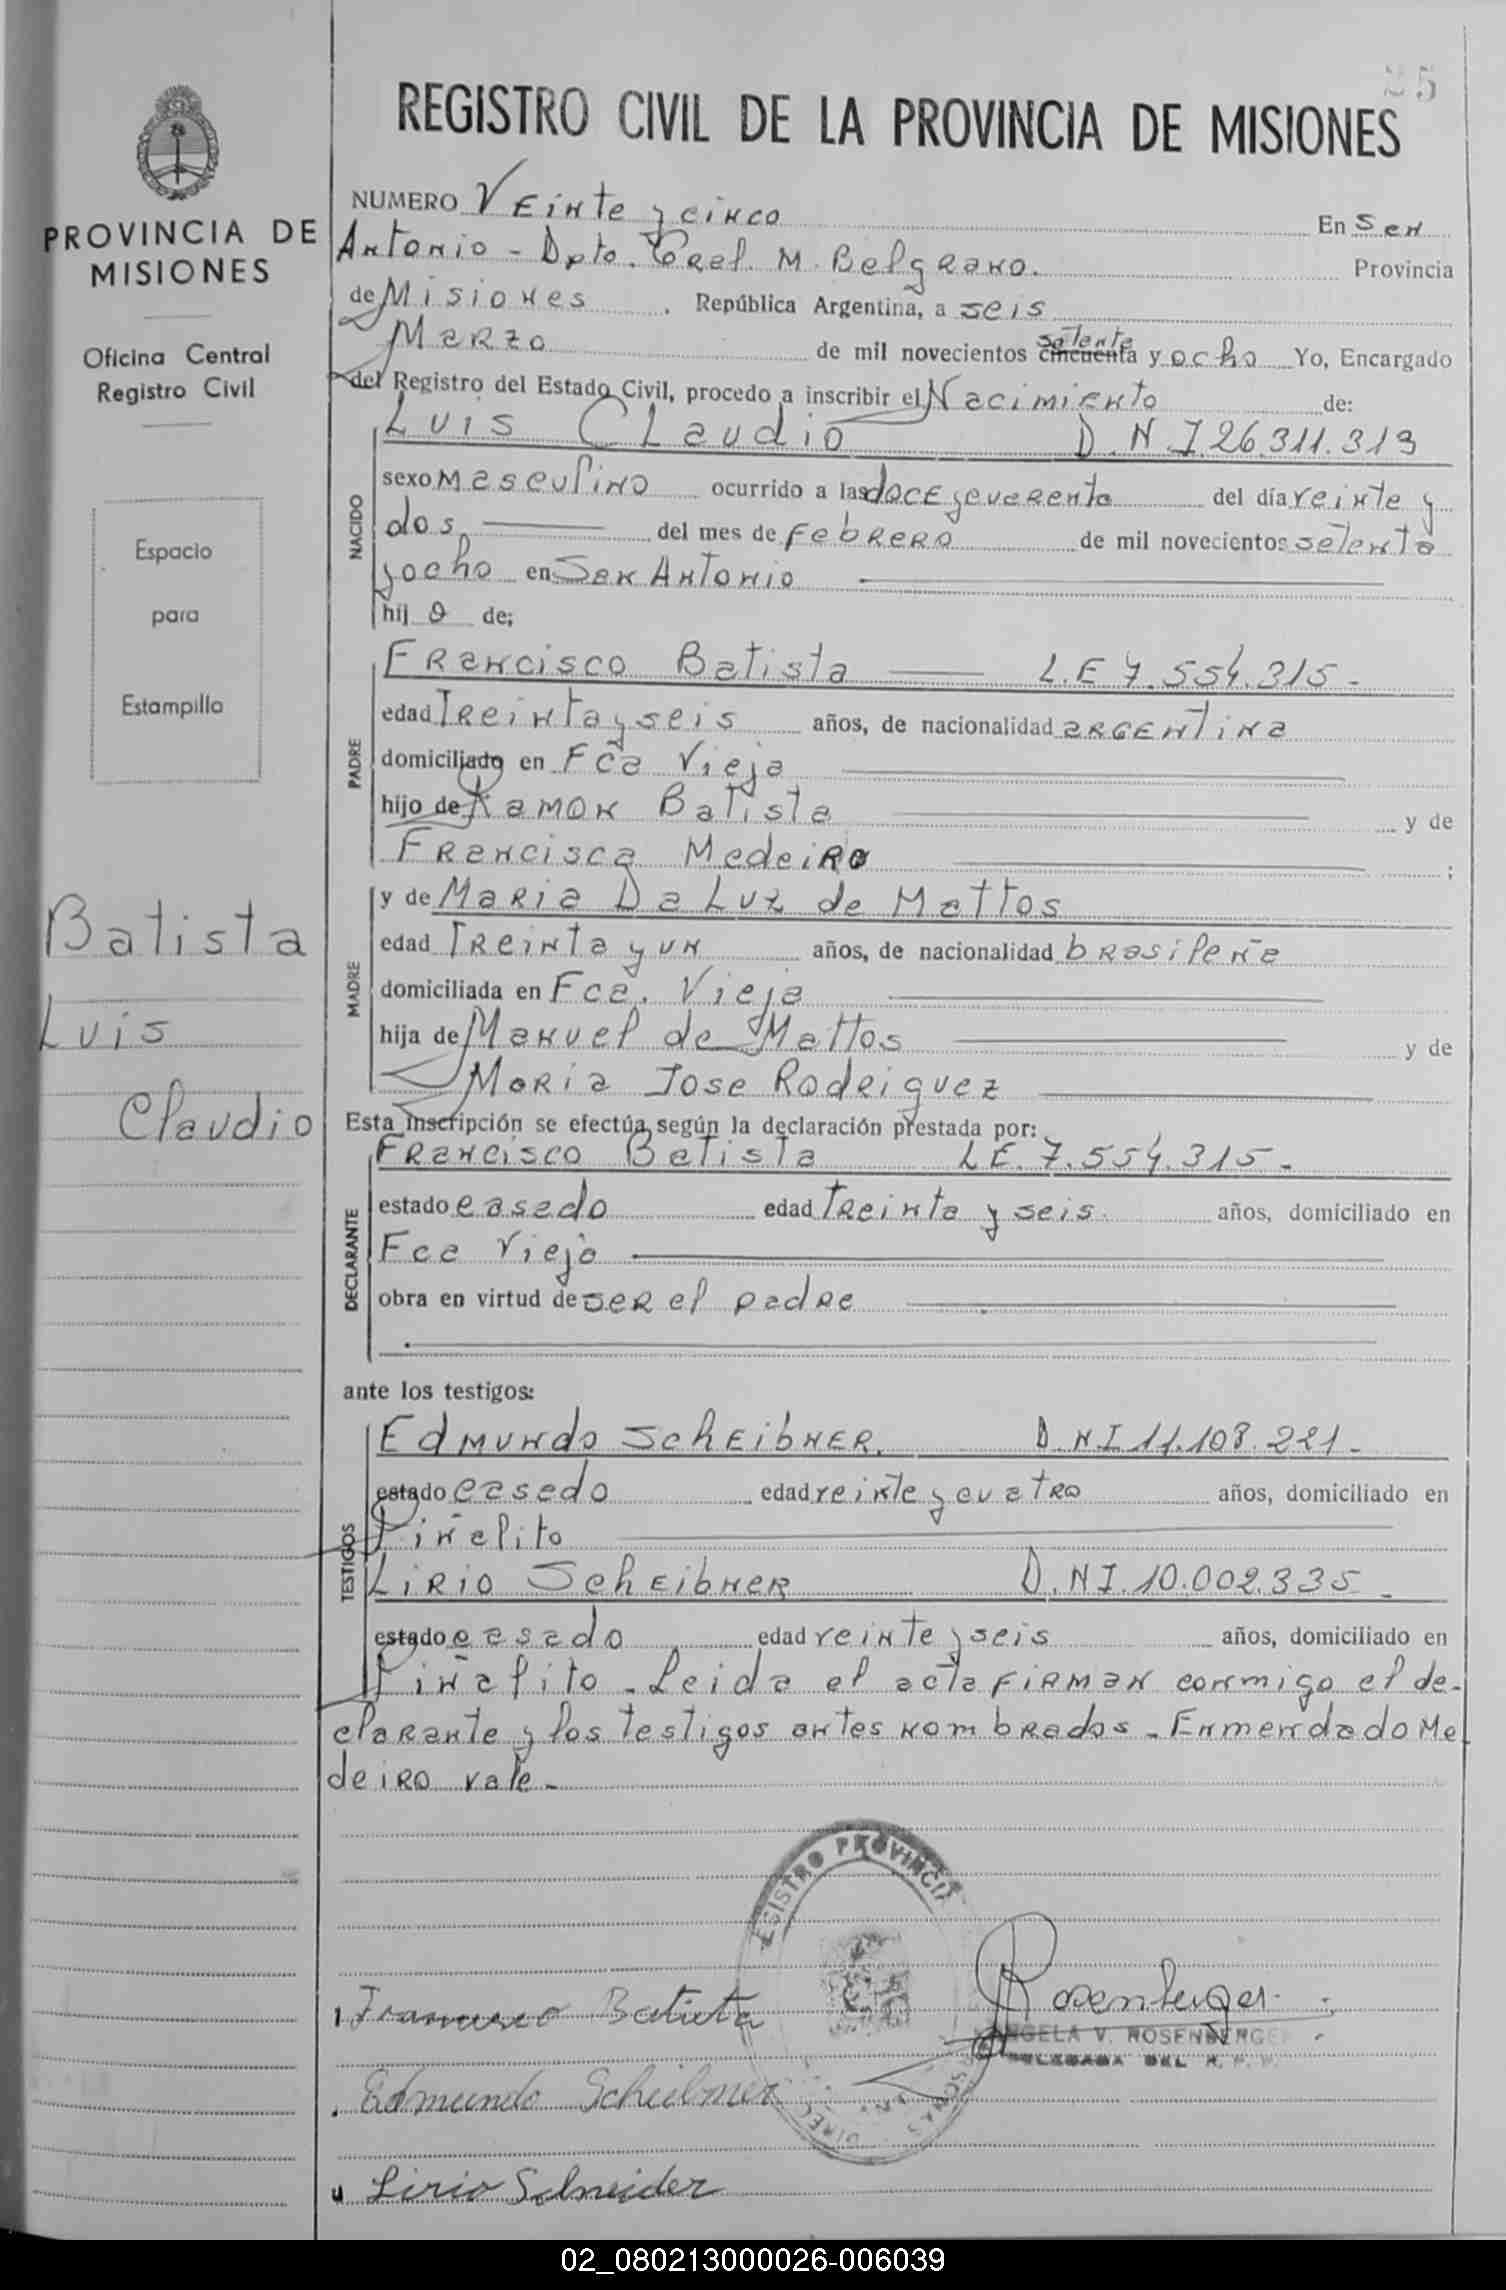 25
REGISTRO CIVIL DE LA PROVINCIA DE MISIONES
PROVINCIA DE
MISIONES
Oficina Central
Registro Civil
Espacio
para
Estampilla
Batista
Luis
Claudio
NUMERO Veinte y cinco En San
Antonio - Dpto. Gral. M. Belgrano. Provincia
de Misiones. República Argentina, a seis
Marzo de mil novecientos cincuenta setenta y ocho Yo, Encargado
del Registro del Estado Civil, procedo a inscribir el Nacimiento de:
Luis Claudio D.N.I 26.311.313
NACIDO
sexo masculino ocurrido a las doce y cuarenta del día veinte y
dos del mes de Febrero de mil novecientos setenta
y ocho en San Antonio
hij o de;
PADRE
Francisco Batista L.E 7.554.315-
edad Treinta y seis años, de nacionalidad argentina
domiciliado en Fca Vieja
hijo de Ramon Batista y de
Francisca Medeiro ;
MADRE
y de Maria Da Luz de Mattos
edad Treinta y un años, de nacionalidad brasileña
domiciliada en Fca. Vieja
hija de Manuel de Mattos y de
Maria Jose Rodriguez
Esta inscripción se efectúa según la declaración prestada por:
DECLARANTE
Francisco Batista L.E. 7.554.315-
estado casado edad Treinta y seis. años, domiciliado en
Fca Vieja
obra en virtud de ser el padre
ante los testigos:
TESTIGOS
Edmundo Scheibner. D.N.I 11.108.221-
estado casado edad veinte y cuatro años, domiciliado en
Piñalito
Lirio Scheibner D.N.I. 10.002.335-
estado casado edad veinte y seis años, domiciliado en
Piñalito - Leida el acta firman conmigo el de-
clarante y los testigos antes nombrados - Enmendado Me
deiro vale-
REGISTRO PROVINCIAL
Francisco Batista
Rosenberger
ANGELA V. ROSENBERGER
DELEGADA DEL R. P. P.
Edmundo Scheibner
Lirio Schneider
02_080213000026-006039